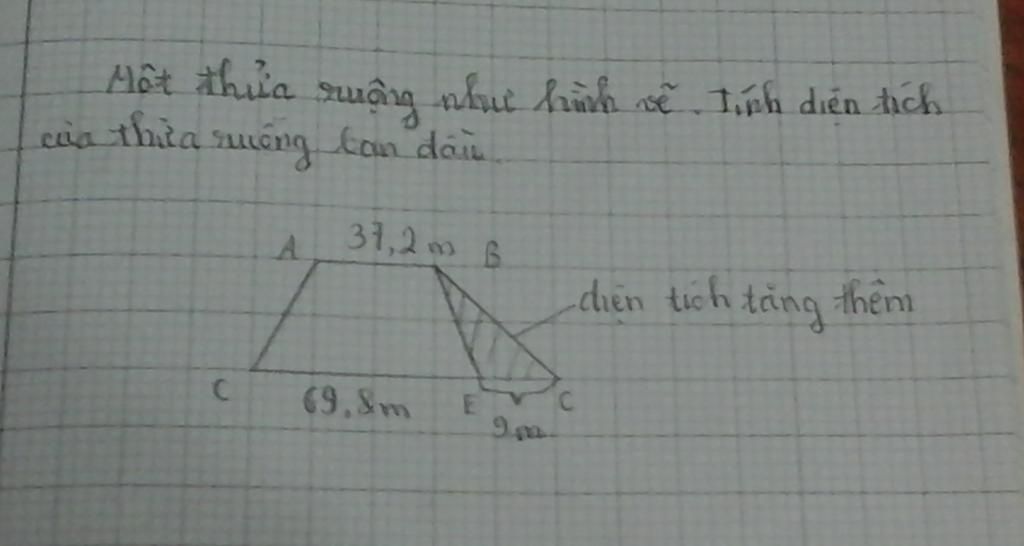 Một thửa ruộng như hình vẽ. Tính diện tích
của thửa ruộng ban đầu.
A 37,2 m B
diện tích tăng thêm
C 69,8m E C
9m